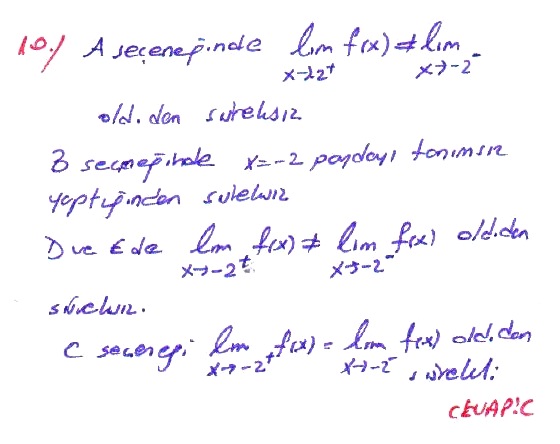 10./ A seçeneğinde lim f(x) ≠ lim
x→-2⁺ x→-2⁻
old. dan süreksiz
B seçeneğinde x=-2 paydayı tanımsız
yaptığından süreksiz
D ve E de lim f(x) ≠ lim f(x) old.dan
x→-2⁺ x→-2⁻
süreksiz.
C seçeneği lim f(x) = lim f(x) old.dan
x→-2⁺ x→-2⁻ sürekli.
CEVAP:C